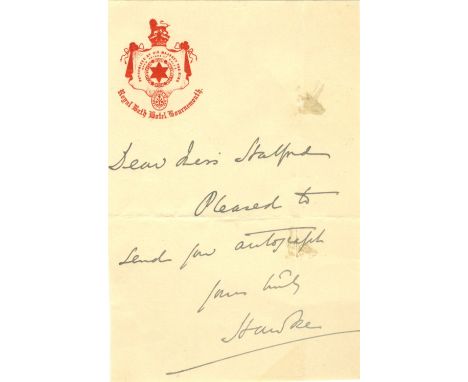 Royal Bath Hotel, Bournemouth.
Dear Miss Stalford
Pleased to
send you autograph
Yours truly
Hawke